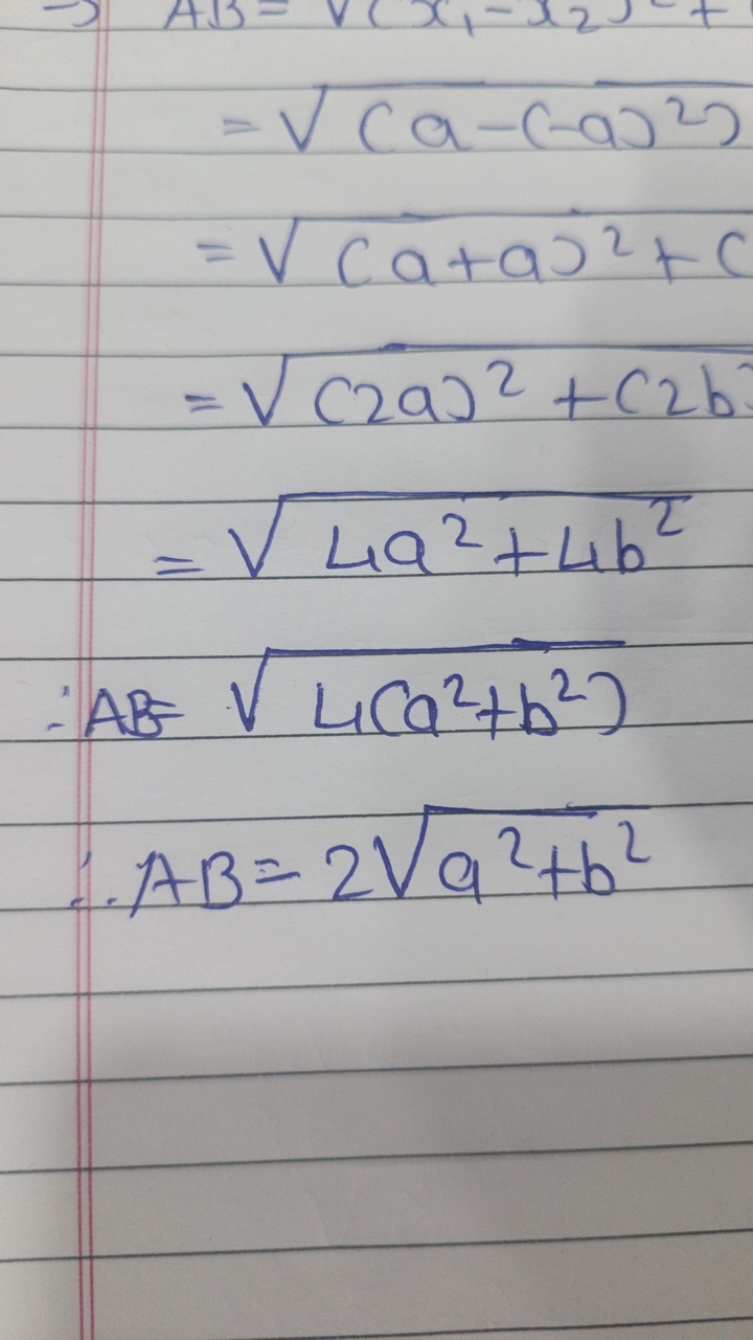 → AB = √(x₁-x₂)² +
= √(a-(-a)²)
= √(a+a)² + (
= √(2a)² + (2b)
= √4a² + 4b²
∴ AB = √4(a²+b²)
∴ AB = 2√a²+b²